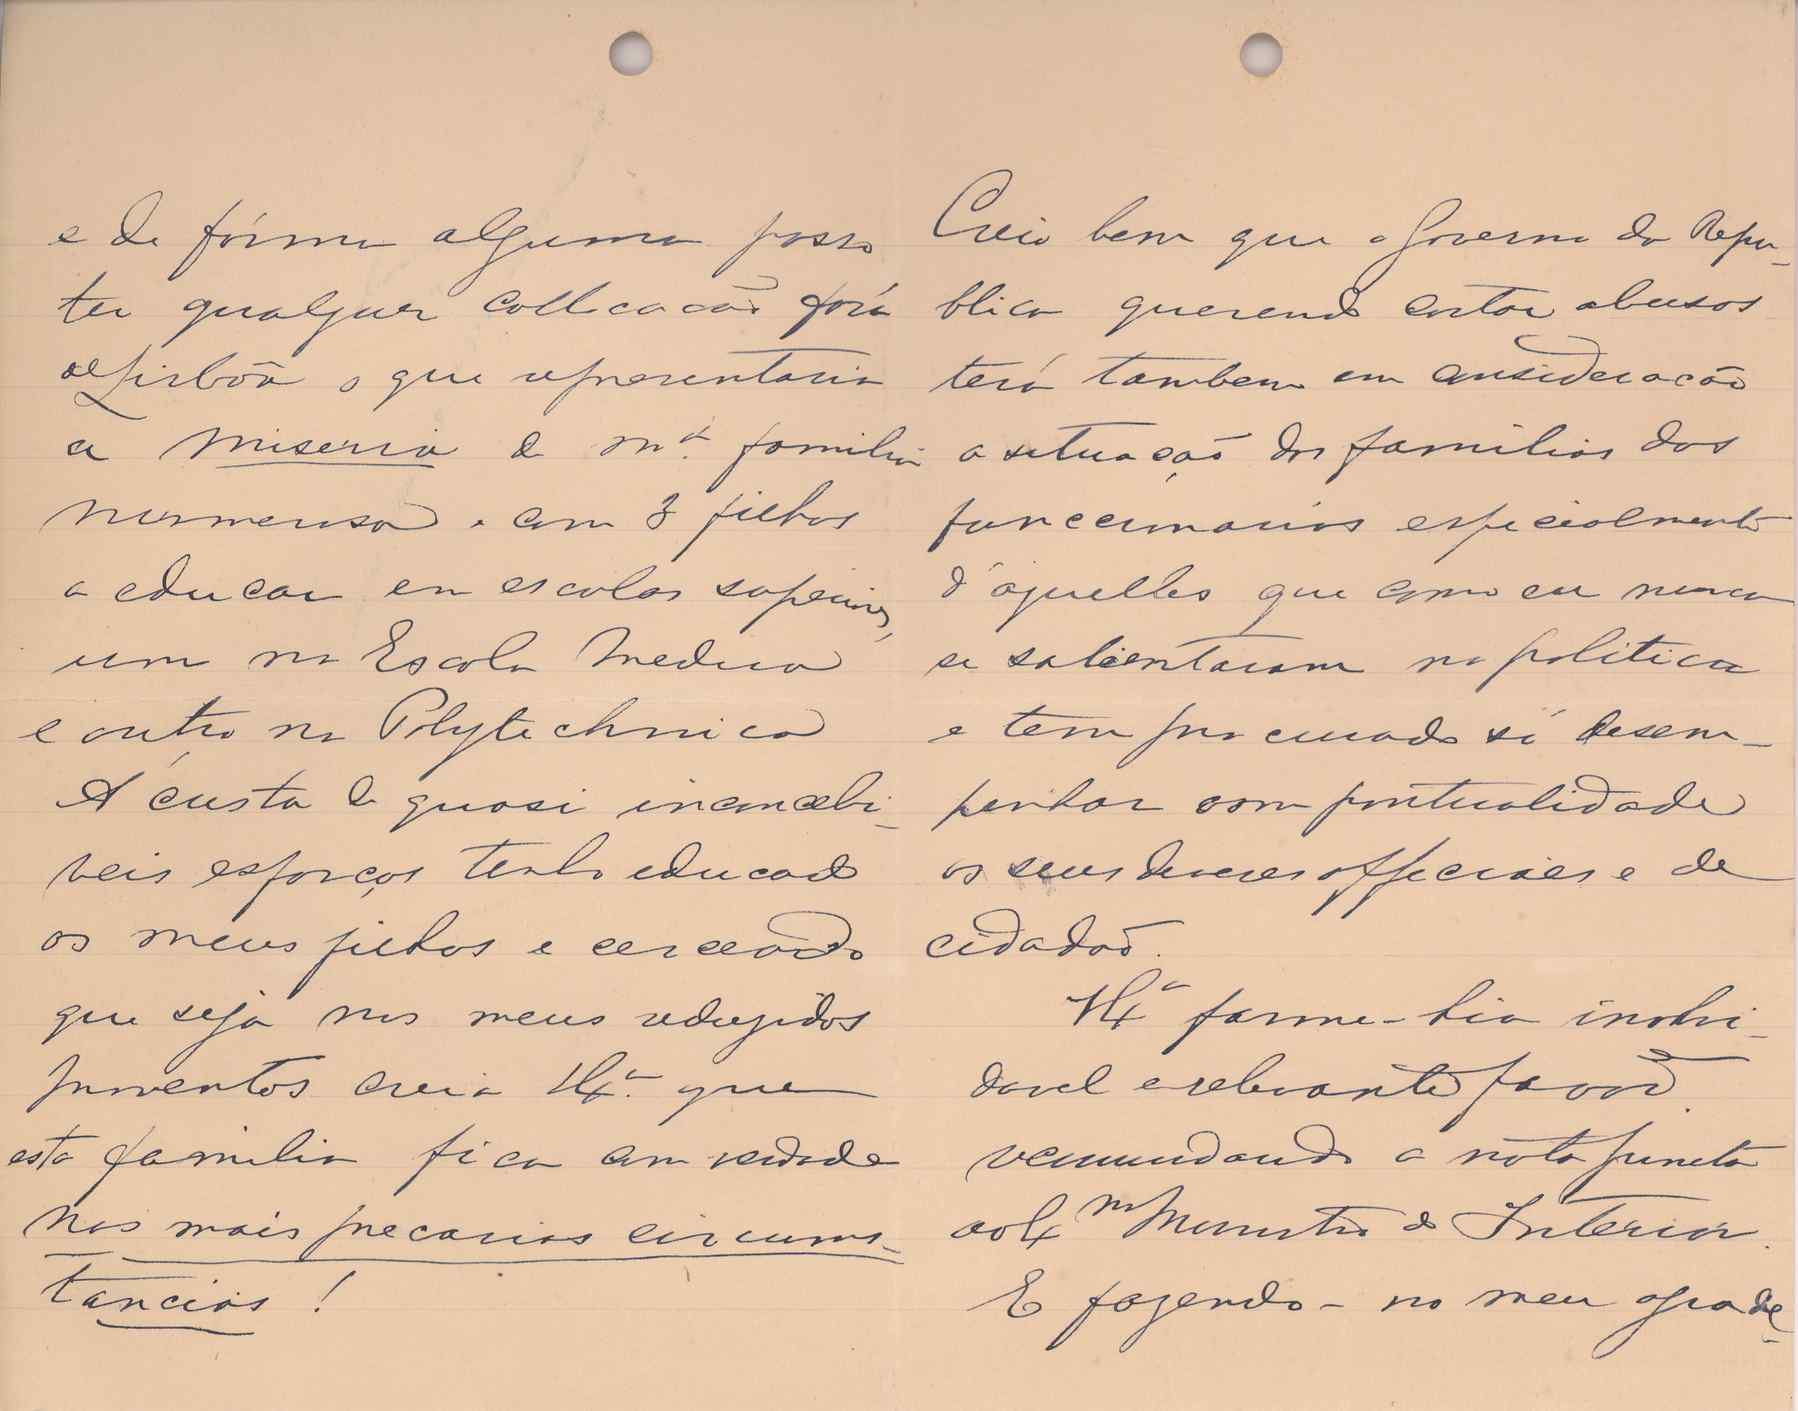 e de fórma alguma posso
ter qualquer collocacão fóra
de Lisbôa o que representaria
a miseria de m.ª familia
numerosa e com 3 filhos
a educar em escolas superiores,
um na Escola Medica
e outro na Polytechnica
Á custa de quasi inconcebi-
veis esforços tenho educado
os meus filhos e cerceando
que seja nos meus reduzidos
proventos creia V. Ex.ª que
esta familia fica em verdade
nas mais precarias circums-
tancias!
Creio bem que o Governo da Repu-
blica querendo cortar abusos
terá tambem em consideracão
a situação das familias dos
funccionarios especialmente
d'aquelles que como eu nunca
se salientaram na politica
e tem procurado só desem-
penhar com pontualidade
os seus deveres officiaes e de
cidadão.
V. Exª farme-hia inolvi-
davel e relevante favor
recommendando a nota juncta
ao Ex.mo Ministro do Interior.
E fazendo-no meu agrade-